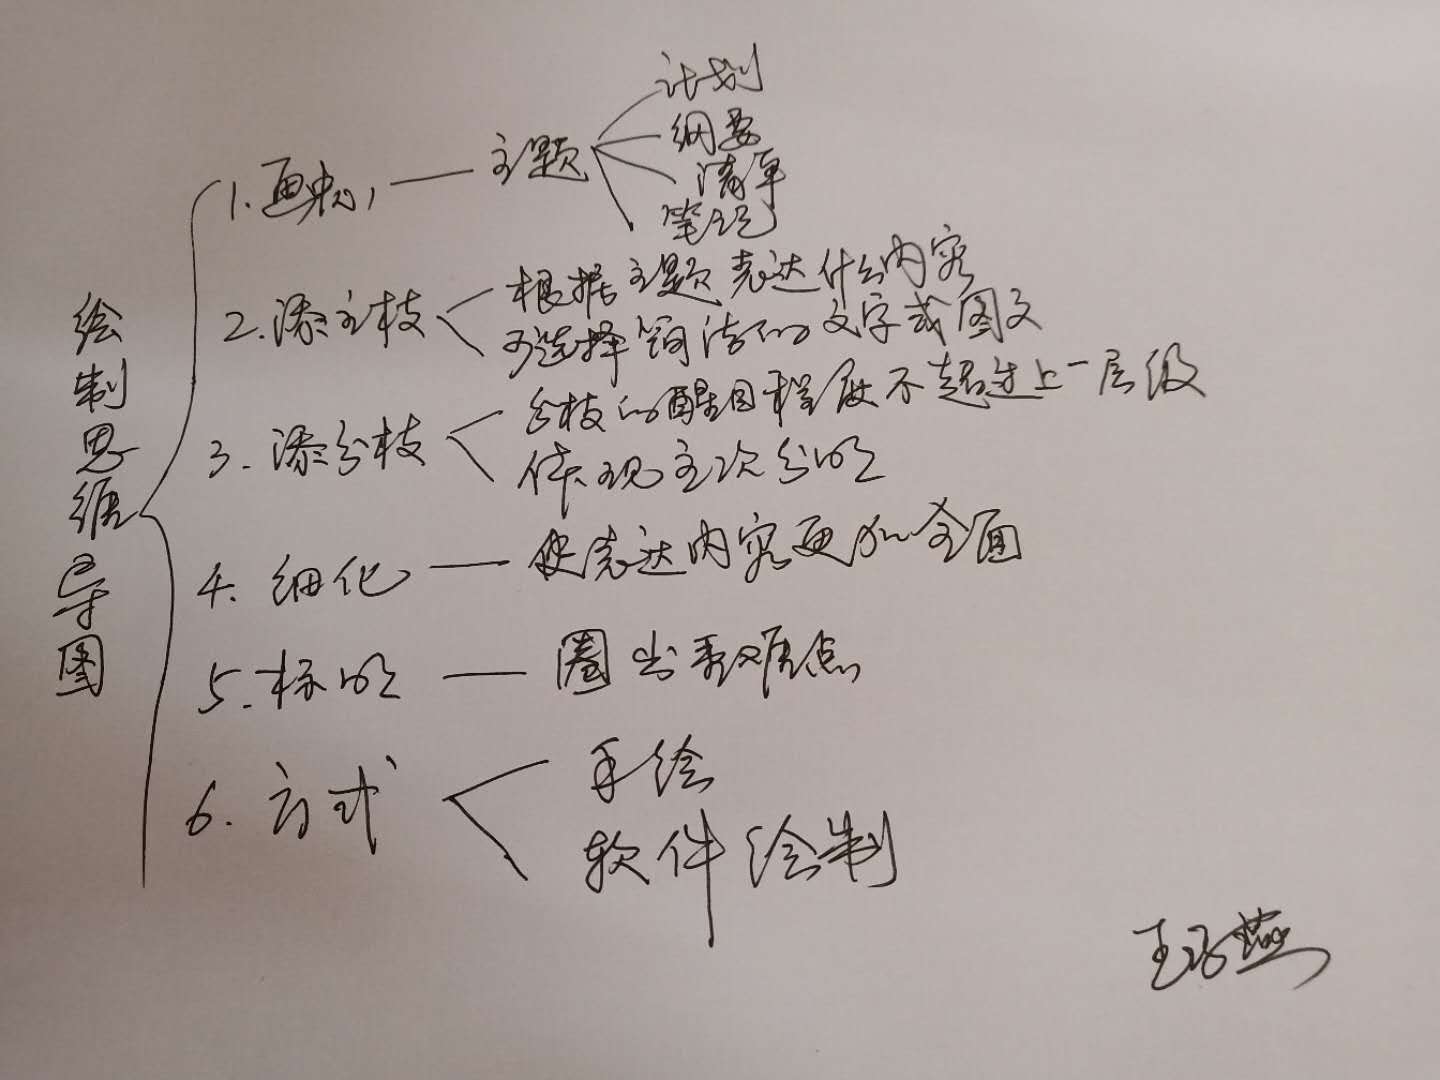 绘制思维导图
1.画中心——主题
计划
纲要
清单
笔记
2.添主枝
根据主题表达什么内容
可选择简洁的文字或图文
3.添分枝
分枝的醒目程度不超过上一层级
体现主次分明
4.细化——使表达内容更加全面
5.标明——圈出重难点
6.方式
手绘
软件绘制